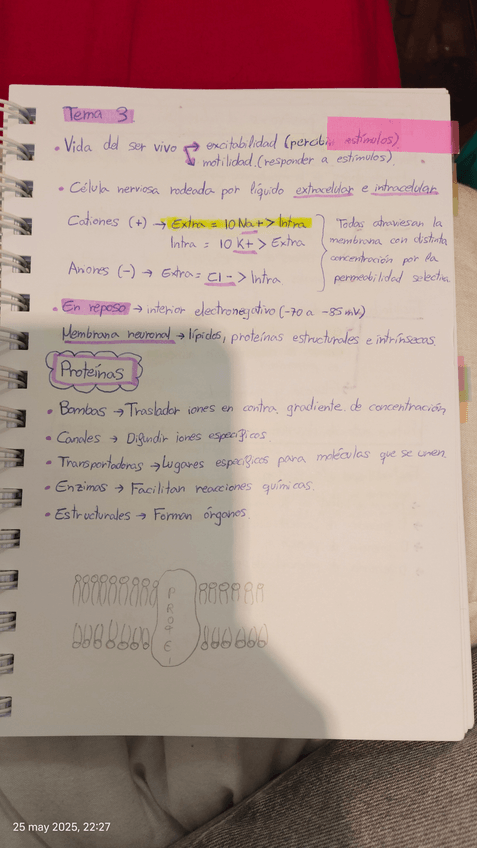 Tema 3
• Vida del ser vivo → excitabilidad (percibir estímulos)
motilidad. (responder a estímulos).
• Célula nerviosa rodeada por líquido extracelular e intracelular
Cationes (+) → Extra = 10 Na+ > Intra
Intra = 10 K+ > Extra
Aniones (-) → Extra = Cl- > Intra
Todos atraviesan la
membrana con distinta
concentración por la
permeabilidad selectiva
• En reposo → interior electronegativo (-70 a -85 mV)
Membrana neuronal → lípidos, proteínas estructurales e intrínsecas.
Proteínas
• Bombas → Trasladar iones en contra gradiente de concentración
• Canales → Difundir iones específicos.
• Transportadoras → Lugares específicos para moléculas que se unen.
• Enzimas → Facilitan reacciones químicas.
• Estructurales → Forman órganos.
P
R
O
T
E
I
25 may 2025, 22:27